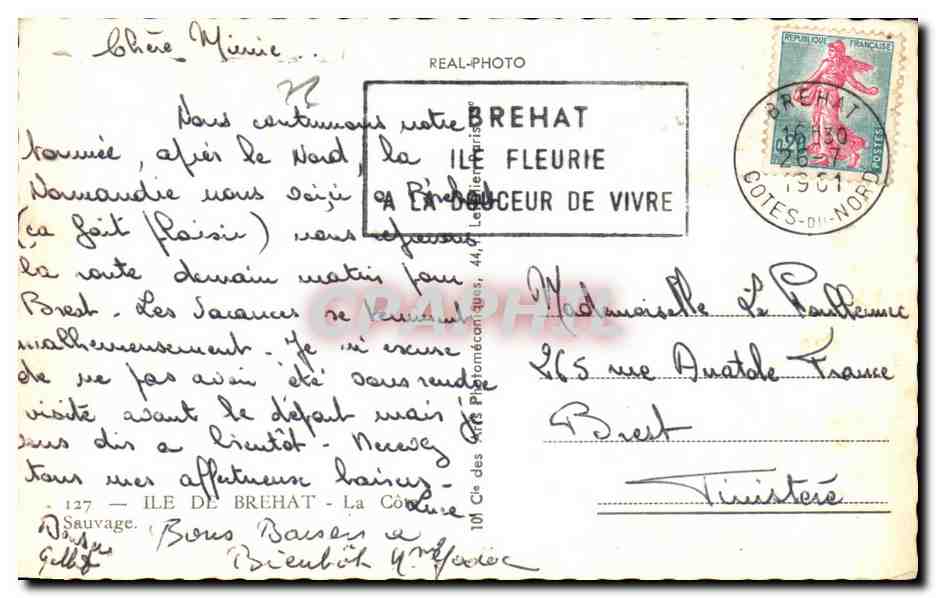 Chère Mimie..
REAL-PHOTO
Nous continuons notre
tournée, après le Nord, la
Normandie nous voici a Bréhat
(ça fait plaisir) nous reprenons
la route demain matin pour
Brest - Les Vacances se terminent
malheureusement - Je m'excuse
de ne pas avoir été vous rendre
visite avant le départ mais je
vous dis a bientôt - Recevez
tous mes affectueux baisers -
Luce
127 - ILE DE BREHAT - La Côte
Sauvage.
Bons Baisers a
Bientôt
BREHAT
ILE FLEURIE
A LA DOUCEUR DE VIVRE
REPUBLIQUE FRANÇAISE
0,20
POSTES
BREHAT
16H30
26-7
1961
COTES-DU-NORD
101 Cie des Arts Photomécaniques, 44,
Mademoiselle Le
265 rue Anatole France
Brest
Finistère
CPAPHIL